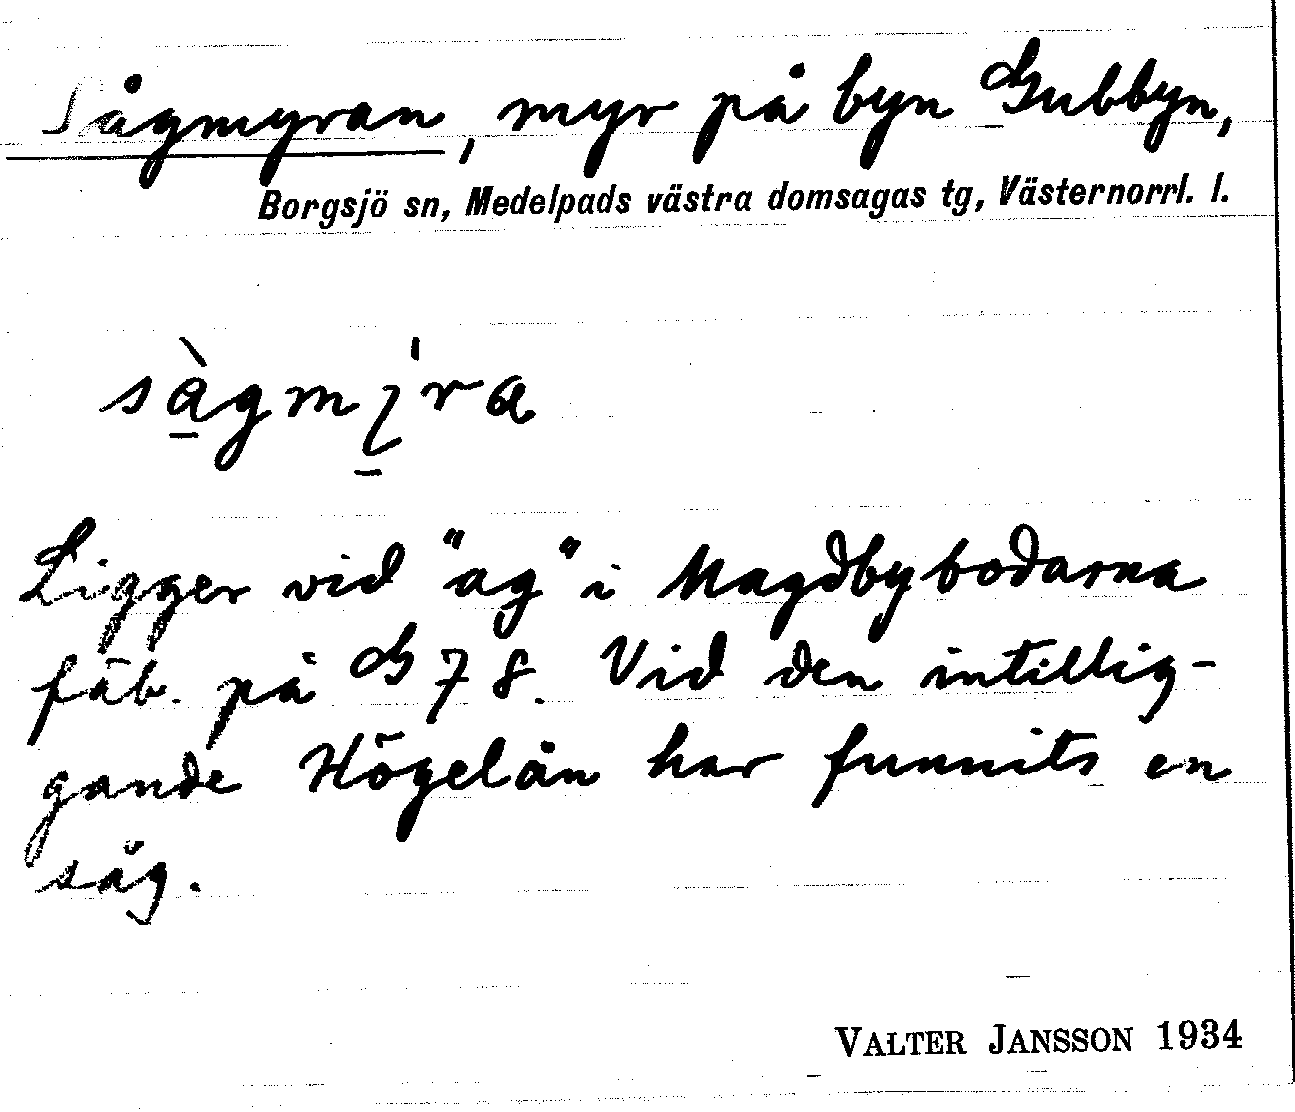 Sågmyran, myr på byn Gubbyn,
Borgsjö sn, Medelpads västra domsagas tg, Västernorrl. l.
Ligger vid "ag" i Magdbybodarna
fäb. på G 7 8. Vid den intillig-
gande Högelån har funnits en
såg.
VALTER JANSSON 1934